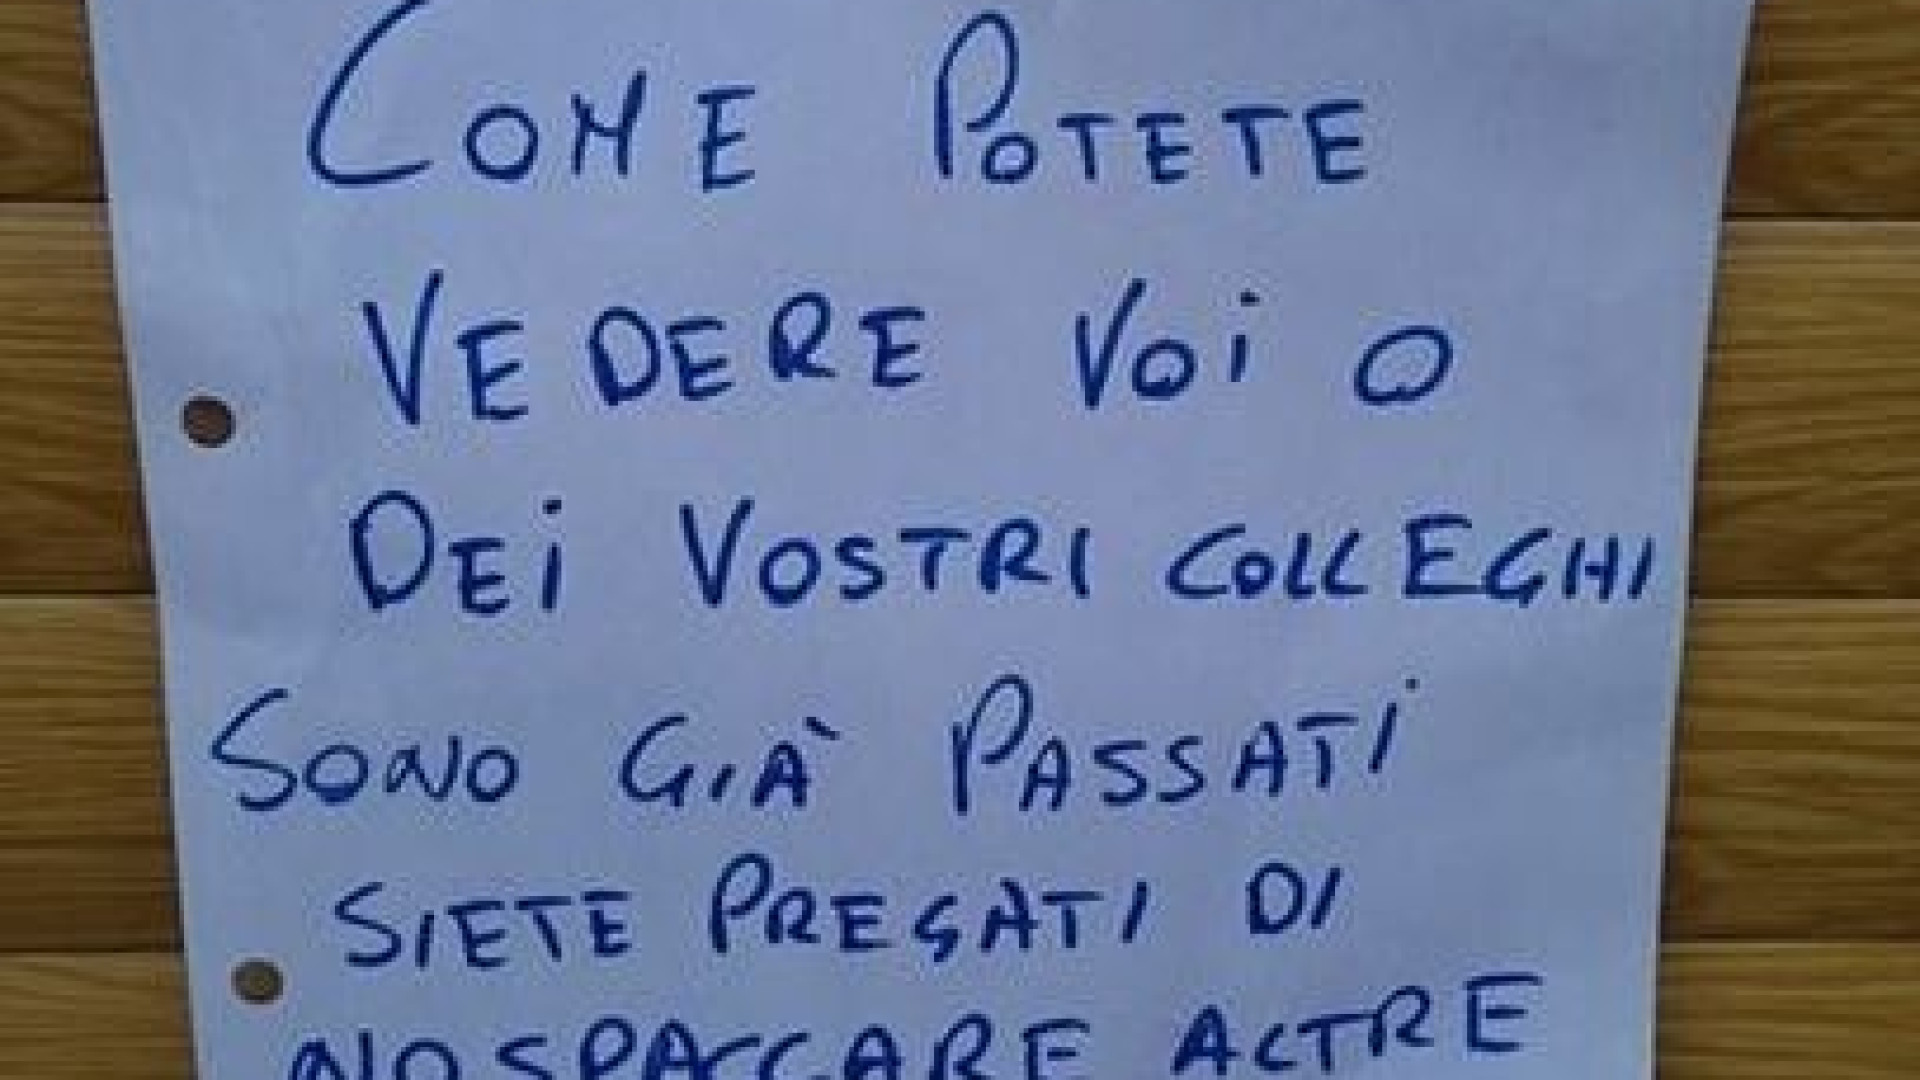 COME POTETE
VEDERE VOI O
DEI VOSTRI COLLEGHI
SONO GIÀ PASSATI
SIETE PREGATI DI
NO SPACCARE ALTRE